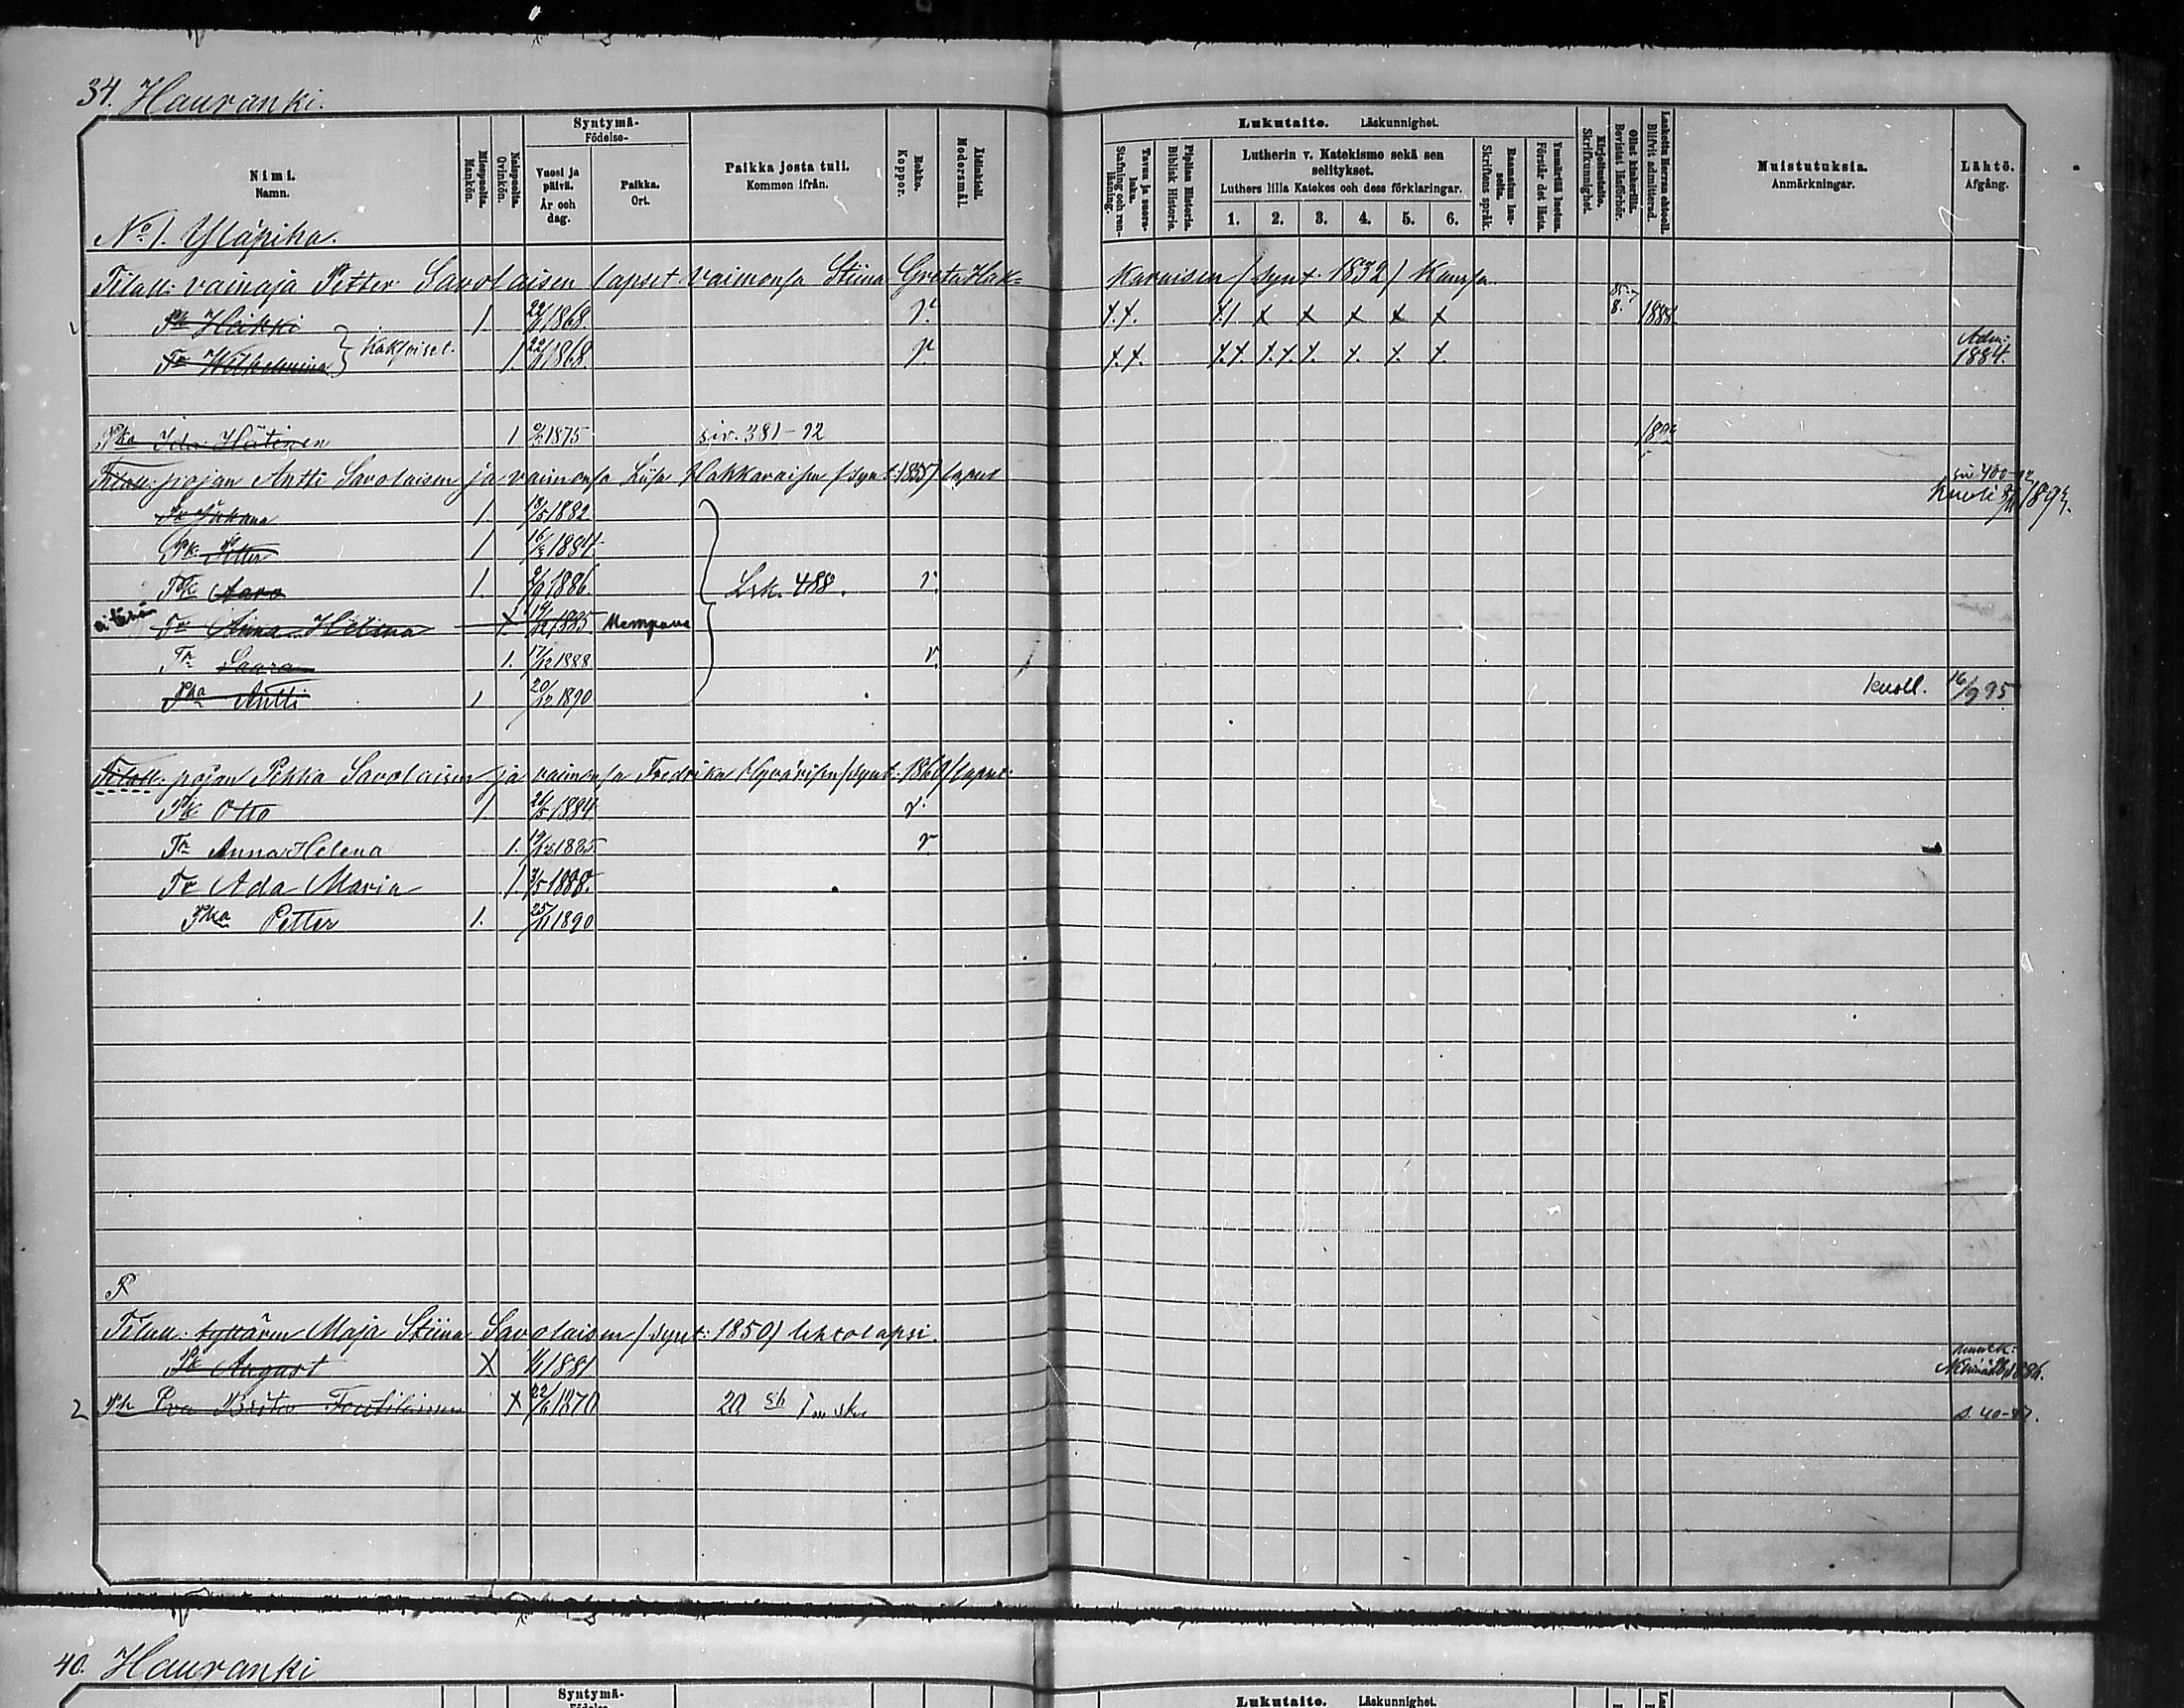 34. Hauranki.
Nimi. Namn.
Miespuolia. Mankön.
Naispuolia. Qvinkön.
Syntymä- Födelse-
Vuosi ja päivä. År och dag.
Paikka. Ort.
Paikka josta tuli. Kommen ifrån.
Rokko. Koppor.
Äidinkieli. Modersmål.
Lukutaito. Läskunnighet.
Tavuu ja suora- luku. Stafning och ren- läsning.
Piplian Historia. Biblisk Historia.
Lutherin v. Katekismo sekä sen selitykset.
Luthers lilla Katekes och dess förklaringar.
1. 2. 3. 4. 5. 6.
Raamatun lau- seita. Skriftens språk.
Ymmärtää luetun. Förstår det lästa.
Kirjoitustaito. Skrifkunnighet.
Ollut kinkerillä. Bevistat läsförhör.
Laskettu Herran ehtooll. Blifvit admitterad.
Muistutuksia. Anmärkningar.
Lähtö. Afgång.
No 1. Yläpiha.
Tilall: vainaja Petter Savolaisen lapset vaimonsa Stiina Greta Hak= karaisen / synt. 1832 / kanssa.
Pk Heikki 1 22/1 1868 r. 8. 1884
Tr Wilhelmina } Kaksoiset. 1. 22/1 1868. r. Adm: 1884.
Pka Ida Hätinen 1 1875 siv. 381-92
Tilall: pojan Antti Savolaisen ja vaimonsa Liisa Hakkaraisen / synt: 1855 / lapset
Juhana 1. 1882
Pk Petter 1 16/3 1884
Pk Aaro 1. 1886. Lrk. 488. r.
Tr Anna Helena 1. 19/12 1885
Tr Saara 1. 17/12 1888 r.
Pka Antti 1 20/12 1890 kuoll. 16/9 95
Tilall: pojan Pekka Savolaisen ja vaimonsa Fredrika Hyvärisen / synt: 1860 / lapset
Pk Otto 1 26/5 1884 r.
Tr Anna Helena 1. 19/12 1885 r
Tr Ada Maria 1. 3/5 1888.
Pka Petter 1. 25/11 1890
Tilall. tyttären Maja Stiina Savolaisen / synt: 1850 / lehtolapsi.
Pk August X 1881 1886.
2 Pk Eva Brita X 22/6 1870 20 s. 40-87.
40. Hauranki
Syntymä-
Lukutaito. Läskunnighet.